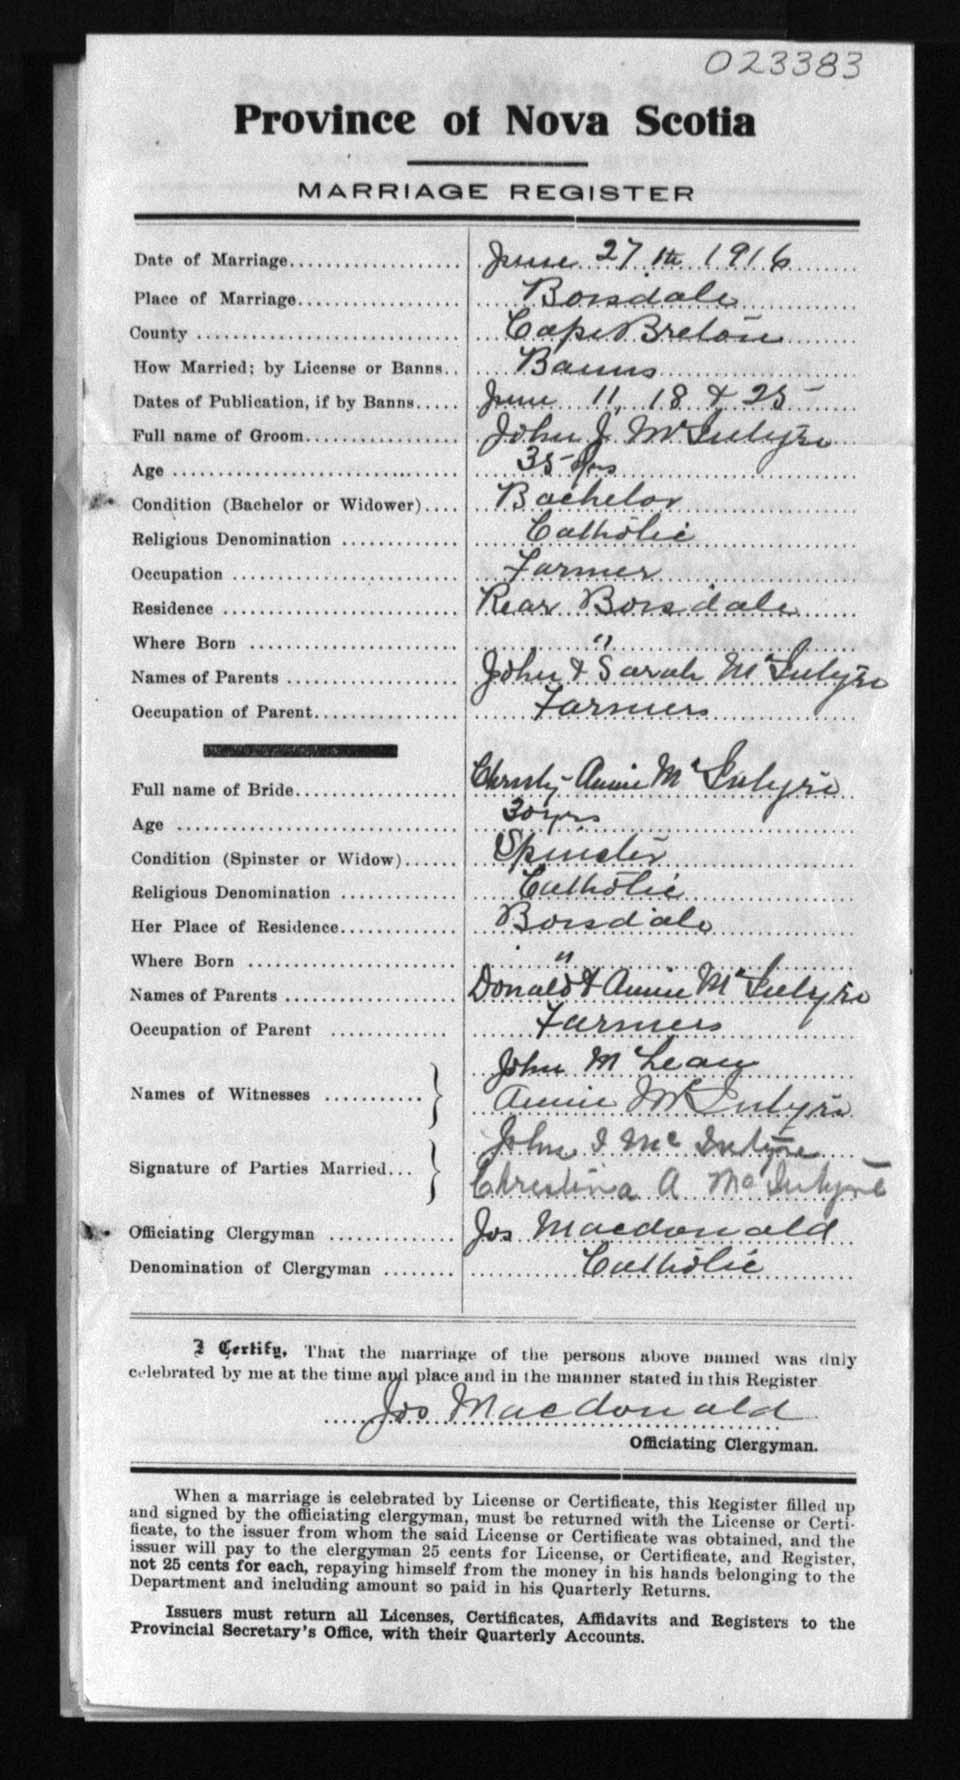 023383
Province of Nova Scotia
MARRIAGE REGISTER
Date of Marriage.................... June 27th 1916
Place of Marriage.................. Boisdale
County .............................. Cape Breton
How Married; by License or Banns.. Banns
Dates of Publication, if by Banns..... June 11, 18 & 25
Full name of Groom................. John J. McIntyre
Age ................................ 35 yrs
Condition (Bachelor or Widower).... Bachelor
Religious Denomination ............. Catholic
Occupation .......................... Farmer
Residence ........................... Rear Boisdale
Where Born ........................ "
Names of Parents ................... John & Sarah McIntyre
Occupation of Parent................ Farmers
Full name of Bride.................. Christy Annie McIntyre
Age ................................ 30 yrs
Condition (Spinster or Widow)...... Spinster
Religious Denomination ............. Catholic
Her Place of Residence............. Boisdale
Where Born ........................ "
Names of Parents ................... Donald & Annie McIntyre
Occupation of Parent ............... Farmers
Names of Witnesses ........... } John McLean
Annie McIntyre
Signature of Parties Married... } John J McIntyre
Christina A McIntyre
Officiating Clergyman .............. Jos Macdonald
Denomination of Clergyman ........ Catholic
I Certify, That the marriage of the persons above named was duly
celebrated by me at the time and place and in the manner stated in this Register
Jos Macdonald
Officiating Clergyman.
When a marriage is celebrated by License or Certificate, this Register filled up
and signed by the officiating clergyman, must be returned with the License or Certi-
ficate, to the issuer from whom the said License or Certificate was obtained, and the
issuer will pay to the clergyman 25 cents for License, or Certificate, and Register,
not 25 cents for each, repaying himself from the money in his hands belonging to the
Department and including amount so paid in his Quarterly Returns.
Issuers must return all Licenses, Certificates, Affidavits and Registers to the
Provincial Secretary's Office, with their Quarterly Accounts.